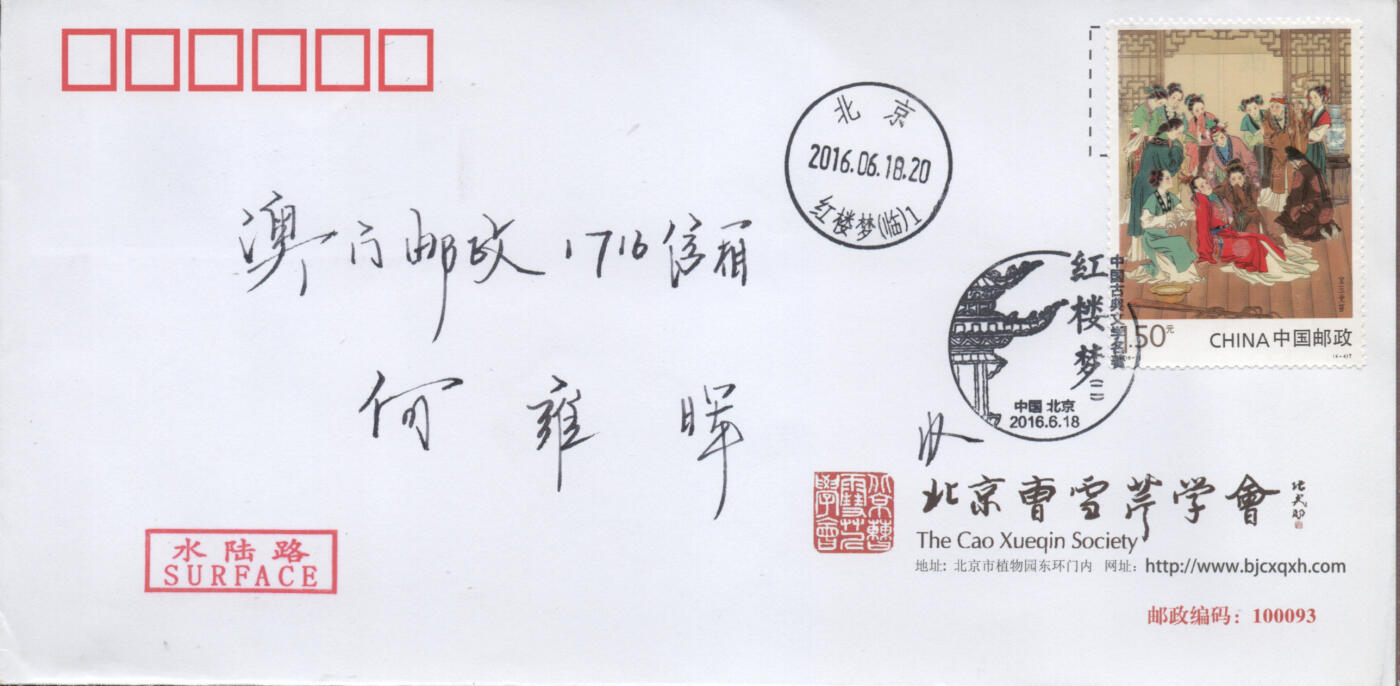 北京
2016.06.18.20
红楼梦(临)1
澳门邮政1716信箱
何雍晖
收
中国古典文学名著
红楼梦(二)
中国 北京
2016.6.18
1.50元
CHINA中国邮政
水陆路
SURFACE
北京曹雪芹学會
北京曹雪芹學會
The Cao Xueqin Society
地址: 北京市植物园东环门内 网址: http://www.bjcxqxh.com
邮政编码: 100093